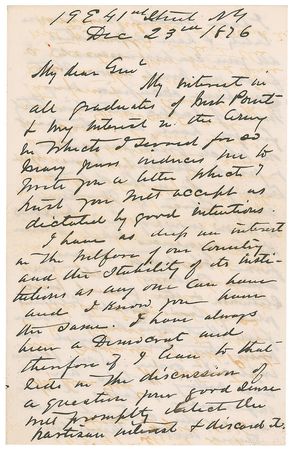 19 E 41st Street NY
Dec 23rd 1876
My dear Genl
My interest in
all graduates of West Point
& my interest in the Army
in which I served for so
many years induces me to
write you a letter which I
trust you will accept as
dictated by good intentions.
I have as deep an interest
in the welfare of our Country
and the stability of its insti-
tutions as any one can have
and I know you have
the same. I have always
been a Democrat and
therefore if I lean to that
side in the discussion of
a question your good sense
will promptly detect the
partisan interest & discard it.